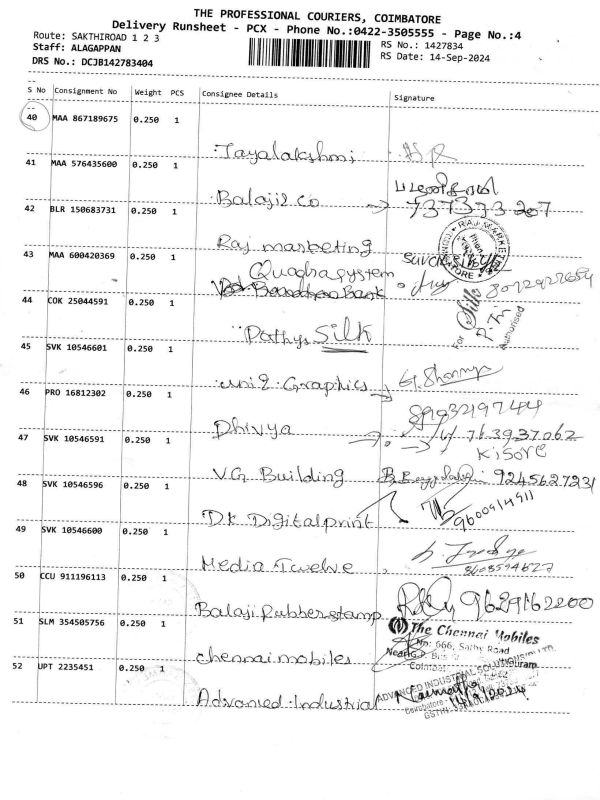 THE PROFESSIONAL COURIERS, COIMBATORE
Delivery Runsheet - PCX - Phone No.:0422-3505555 - Page No.:4
Route: SAKTHIROAD 1 2 3
RS No.: 1427834
Staff: ALAGAPPAN
RS Date: 14-Sep-2024
DRS No.: DCJB142783404
S No Consignment No Weight PCS Consignee Details Signature
40 MAA 867189675 0.250 1
Jayalakshmi
41 MAA 576435600 0.250 1
Balaji & Co 737373207
42 BLR 150683731 0.250 1
Raj marketing
43 MAA 600420369 0.250 1
Quagha system
Bank
44 COK 25044591 0.250 1
Pothys SILK
For Silks
Authorised
45 SVK 10546601 0.250 1
uni & Graphics
46 PRO 16812302 0.250 1
Dhivya 763937062
Kisore
47 SVK 10546591 0.250 1
V.G. Building 9245627231
48 SVK 10546596 0.250 1
DK Digital print 9600914911
49 SVK 10546600 0.250 1
Media Twelve
50 CCU 911196113 0.250 1
Balaji Rubber stamp 9629162200
51 SLM 354505756 0.250 1
The Chennai Mobiles
No: 666, Sathy Road
chennai mobiles
52 UPT 2235451 0.250 1
ADVANCED INDUSTRIAL SOLUTIONS
Advanced Industrial